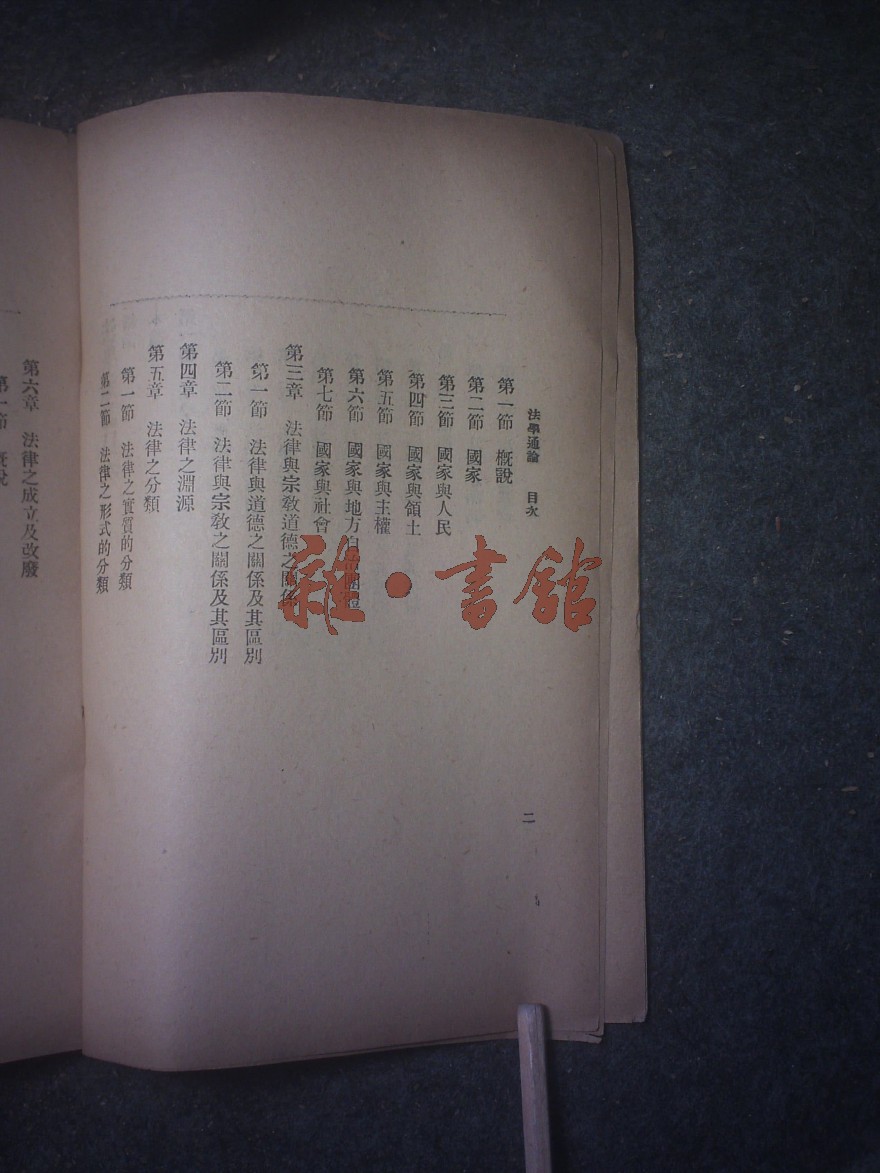 法學通論　目次
第一節　概說
第二節　國家
第三節　國家與人民
第四節　國家與領土
第五節　國家與主權
第六節　國家與地方自治團體
第七節　國家與社會
第三章　法律與宗教道德之關係
第一節　法律與道德之關係及其區別
第二節　法律與宗教之關係及其區別
第四章　法律之淵源
第五章　法律之分類
第一節　法律之實質的分類
第二節　法律之形式的分類
二
第六章　法律之成立及改廢
第一節　概說
雜·書館